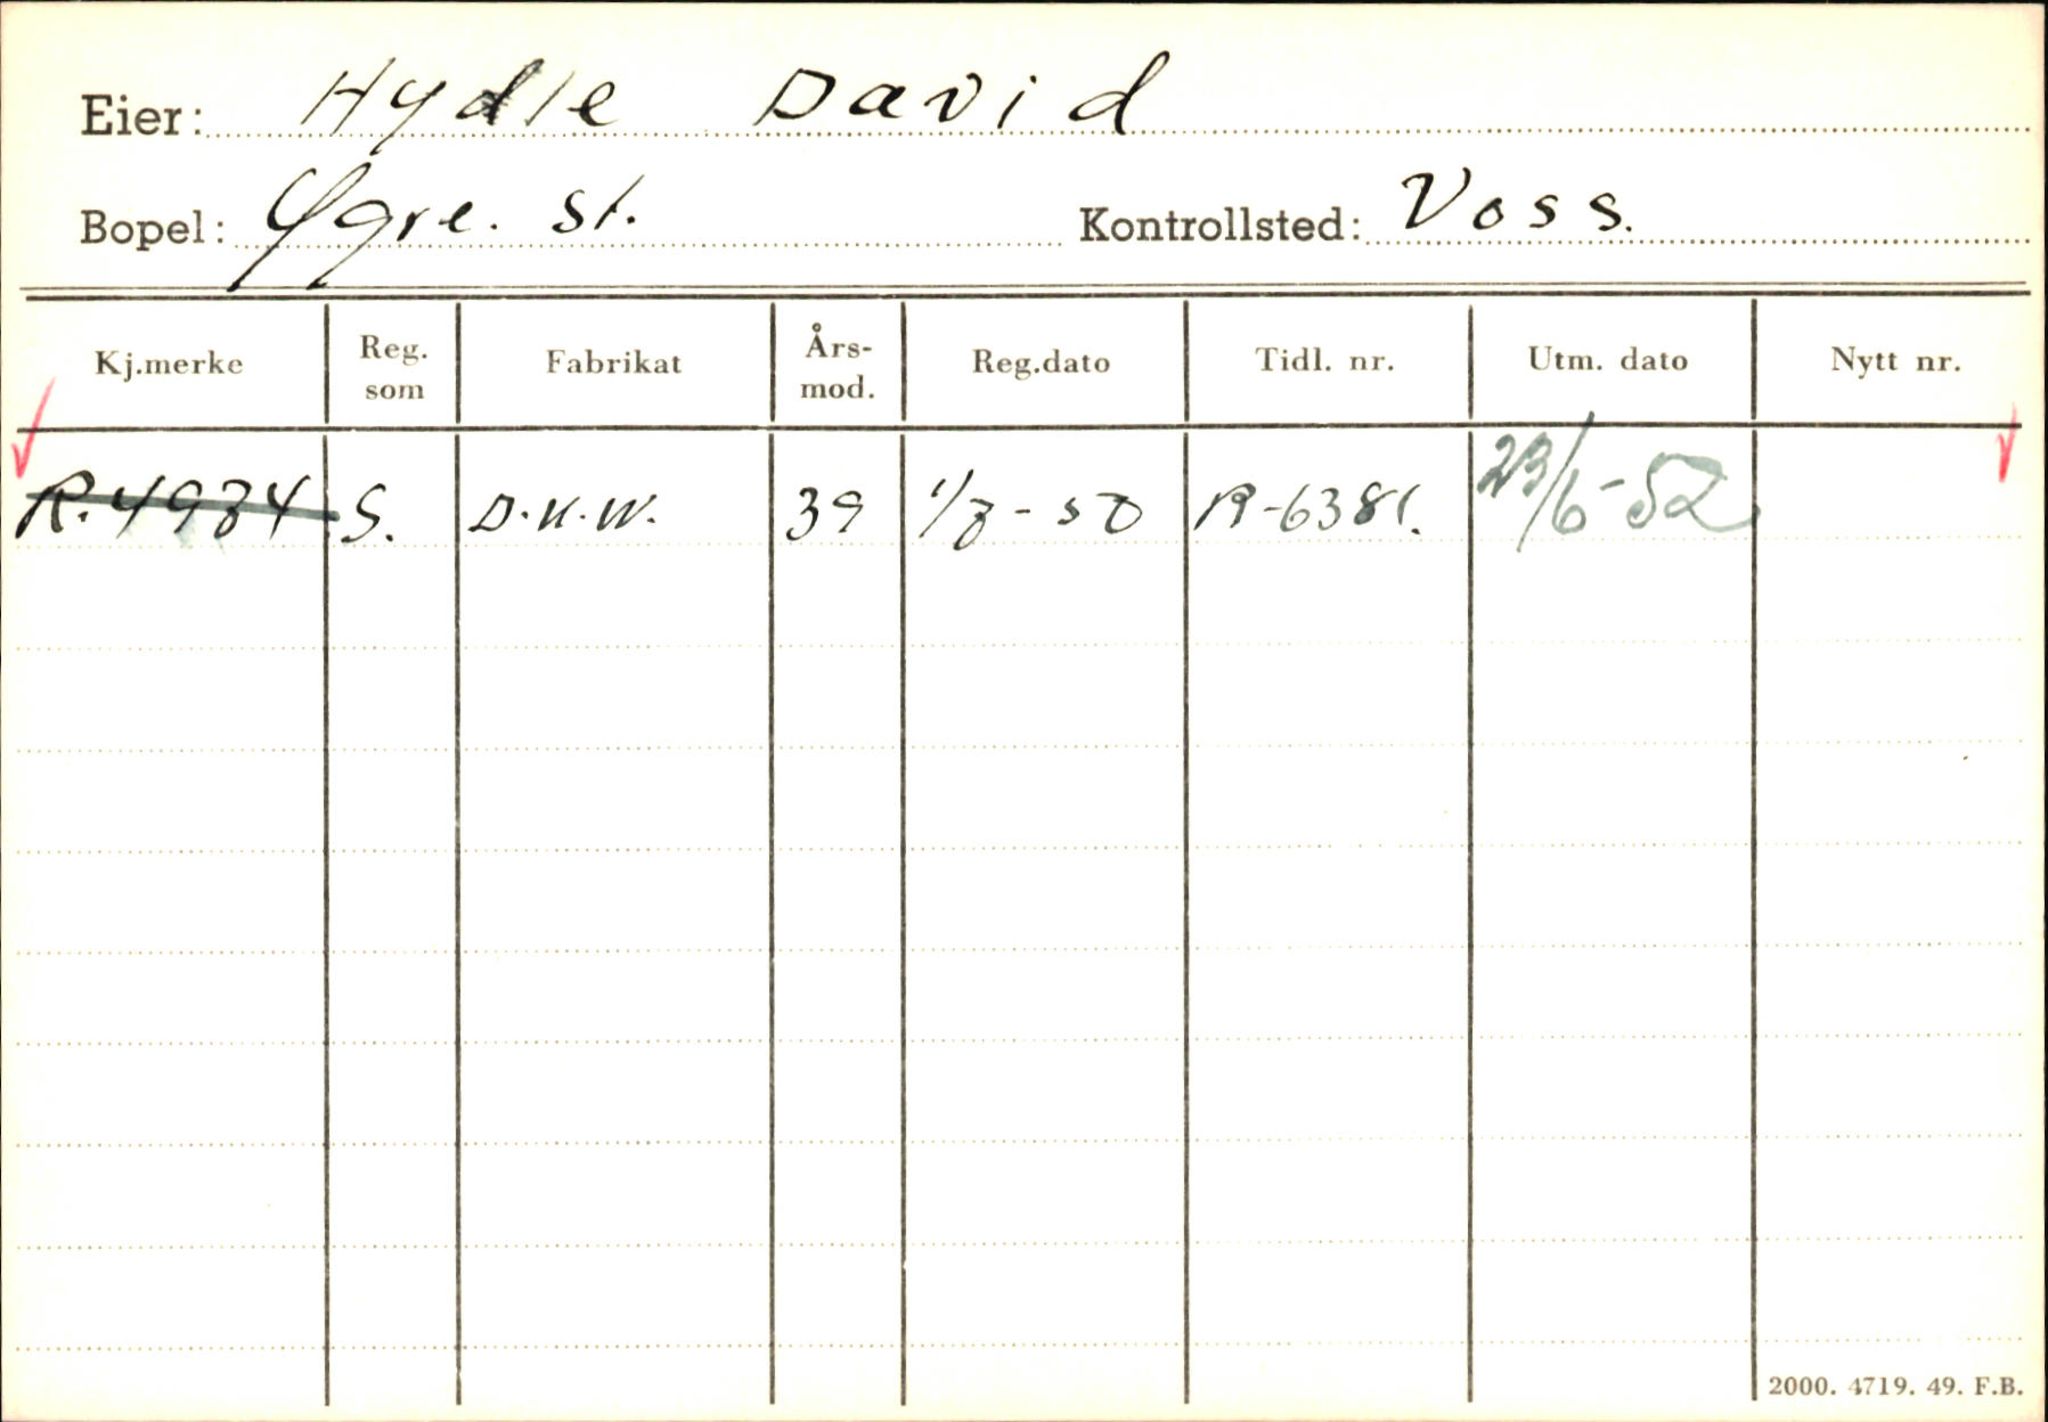 Eier: Hydle David
Bopel: Ygre. st. Kontrollsted: Voss.
Kj.merke Reg. som Fabrikat Års-mod. Reg.dato Tidl. nr. Utm. dato Nytt nr.
R.4934 S. D.K.W. 39 1/3-50 R-6381. 23/6-52
2000. 4719. 49. F.B.